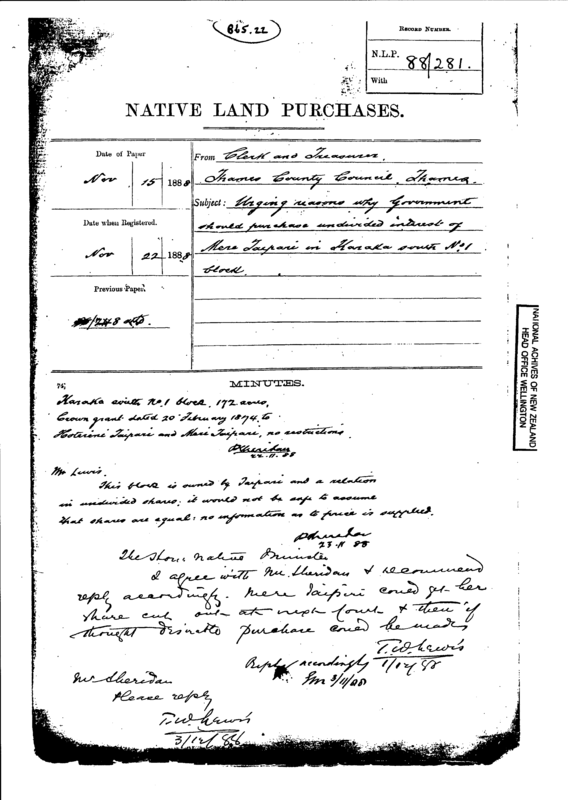 865.22
RECORD NUMBER.
N.L.P. 88/281.
With
NATIVE LAND PURCHASES.
Date of Paper
Nov 15 1888
Date when Registered.
Nov 22 1888
Previous Paper.
From Clerk and Treasurer,
Thames County Council, Thames.
Subject: Urging reasons why Government
should purchase undivided interest of
Mere Taipari in Karaka south No 1
block.
NATIONAL ACHIVES OF NEW ZEALAND
HEAD OFFICE WELLINGTON
MINUTES.
Karaka south No. 1 block, 172 acres,
Crown grant dated 20 February 1874 to
Hoterini Taipari and Meri Taipari, no restrictions.
PSheridan
22.11.88
Mr Lewis.
This block is owned by Taipari and a relation
in undivided shares; it would not be safe to assume
that shares are equal: no information as to price is supplied.
PSheridan
23.11.88
The Hon: Native Minister
I agree with Mr. Sheridan & recommend
reply accordingly. Mere Taipari could get her
share cut out at next Court & then if
thought desirable purchase could be made
T.W. Lewis
1/12/88
Reply accordingly
3/11/88
Mr Sheridan
Please reply
T.W. Lewis
3/12/88